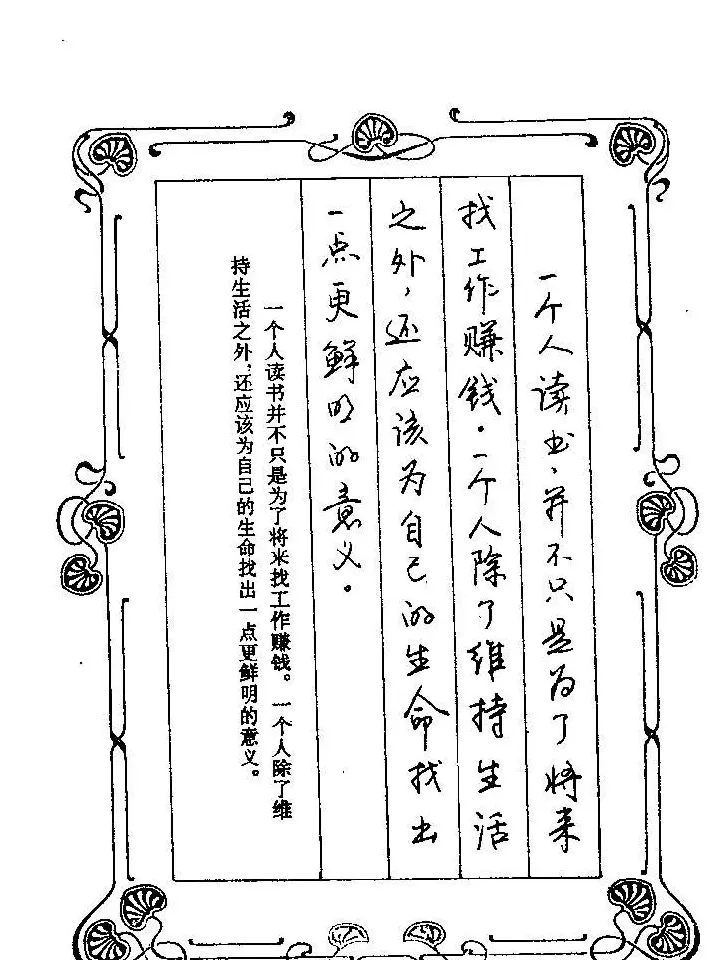 一个人读书，并不只是为了将来
找工作赚钱。一个人除了维持生活
之外，还应该为自己的生命找出
一点更鲜明的意义。
一个人读书并不只是为了将来找工作赚钱。一个人除了维
持生活之外，还应该为自己的生命找出一点更鲜明的意义。